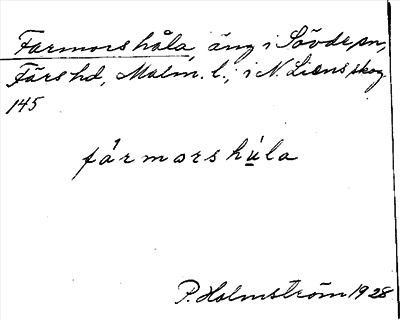 Farmorshåla, äng i Sövde sn,
Färs hd, Malm. l., i N. Liens skog
145
fármorshúla
P. Holmström 1928